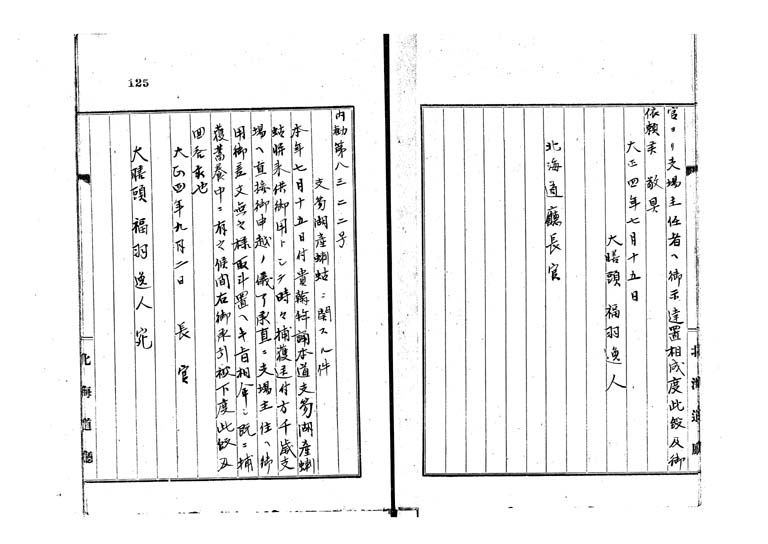 官ヨリ支場主任者ヘ御示達置相成度此段及御
依頼候 敬具
大正四年七月十五日
大膳頭 福羽逸人
北海道廳長官
北海道廳
125
内勧第八三二二号
支笏湖産蝲蛄ニ関スル件
本年七月十五日付貴翰拝誦本道支笏湖産蝲
蛄将来供御用トシテ時々捕獲送付方千歳支
場ヘ直接御申越ノ儀了承直ニ支場主任ヘ御
用御差支無之様取斗置ヘキ旨相令シ既ニ捕
獲蓄養中ニ有之候間右御承引被下度此段及
回答候也
大正四年九月二日 長官
大膳頭 福羽逸人宛
北海道廳